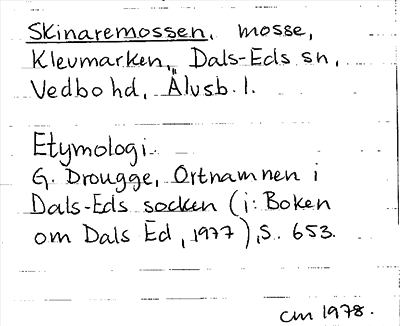 Skinaremossen, mosse,
Klevmarken, Dals-Eds sn,
Vedbo hd, Älvsb. l.
Etymologi
G. Drougge, Ortnamnen i
Dals-Eds socken (i: Boken
om Dals Ed, 1977), s. 653.
cm 1978.